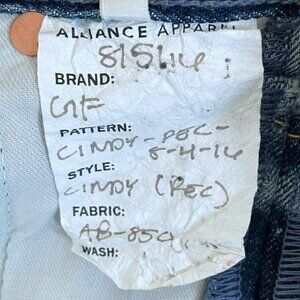 ALLIANCE APPAREL
81516
BRAND:
GF
PATTERN:
CINDY-REC-
5-4-16
STYLE:
CINDY (REC)
FABRIC:
AB-850
WASH: